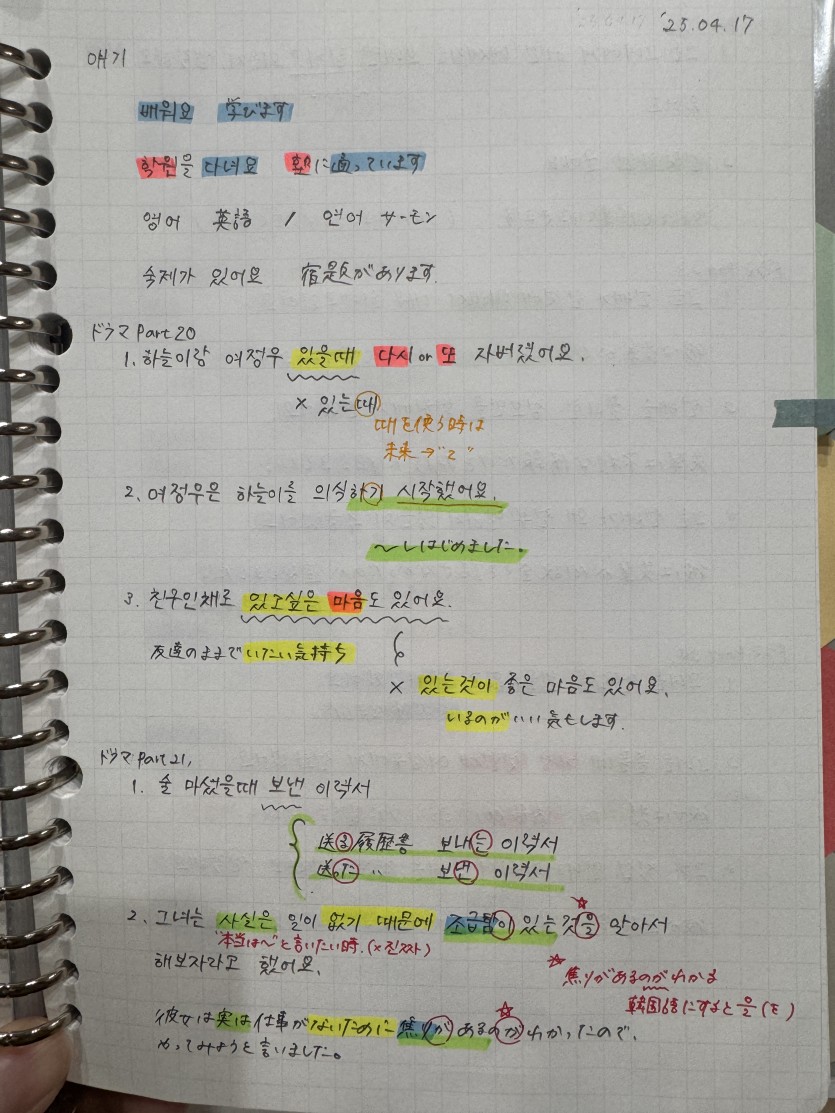 '25.04.17
얘기
배워요 学びます
학원을 다녀요 塾に通っています
영어 英語 / 연어 サーモン
숙제가 있어요 宿題があります.
ドラマ Part 20
1. 하늘이랑 여정우 있을때 다시 or 또 자버렸어요.
× 있는때
때を使う時は
未来→"ㄹ"
2. 여정우은 하늘이를 의식하기 시작했어요.
〜しはじめました。
3. 친구인채로 있고싶은 마음도 있어요.
友達のままでいたい気持ち
× 있는것이 좋은 마음도 있어요.
いるのがいい気もします.
ドラマ Part 21,
1. 술 마셨을때 보낸 이력서
送る履歴書 보내는 이력서
送った 〃 보낸 이력서
2. 그녀는 사실은 일이 없기 때문에 조급함이 있는것을 알아서
"本当は〜"と言いたい時.(×진짜)
해보자라고 했어요.
☆焦りがあるのがわかる
韓国語にすると을(を)
彼女は実は仕事がないために焦りがあるのがわかったので、
やってみようと言いました。